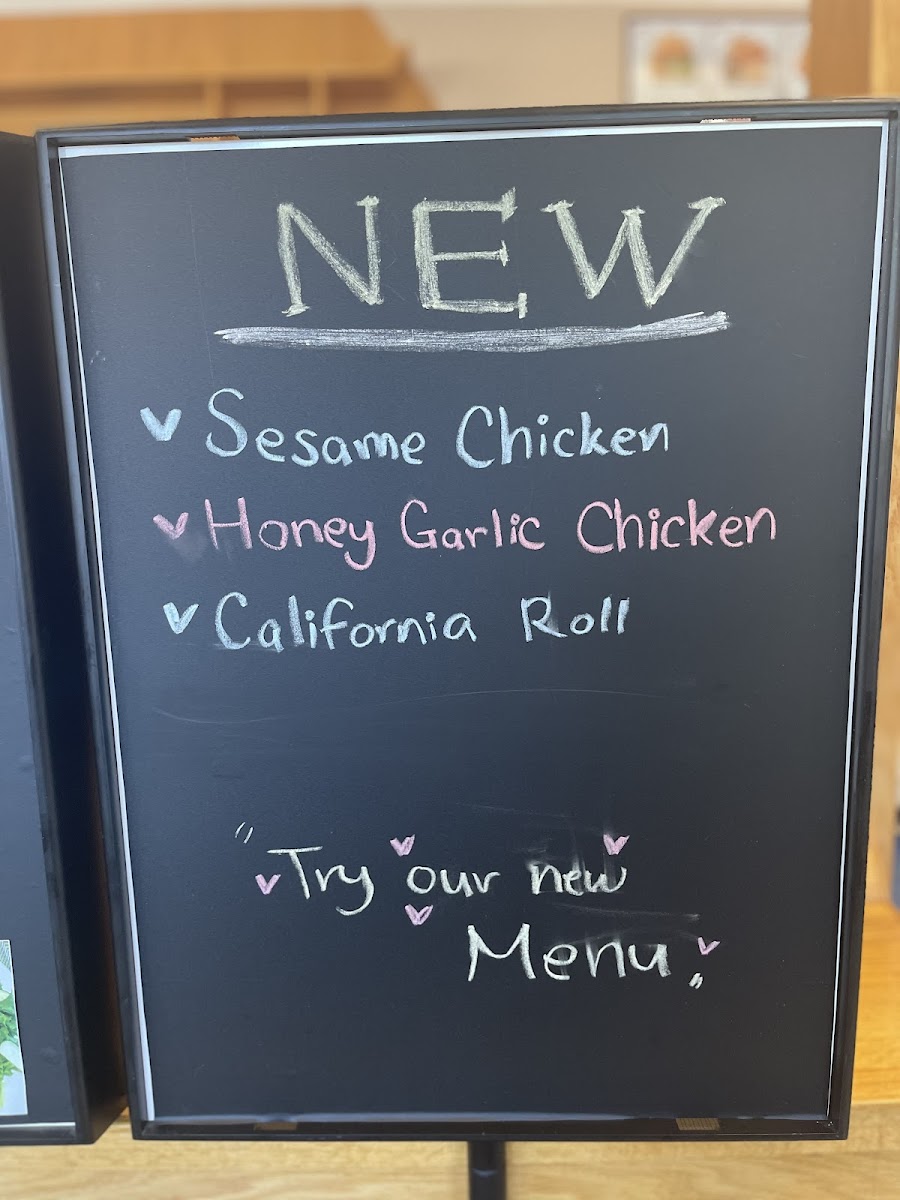 NEW
Sesame Chicken
Honey Garlic Chicken
California Roll
"Try our new
Menu."